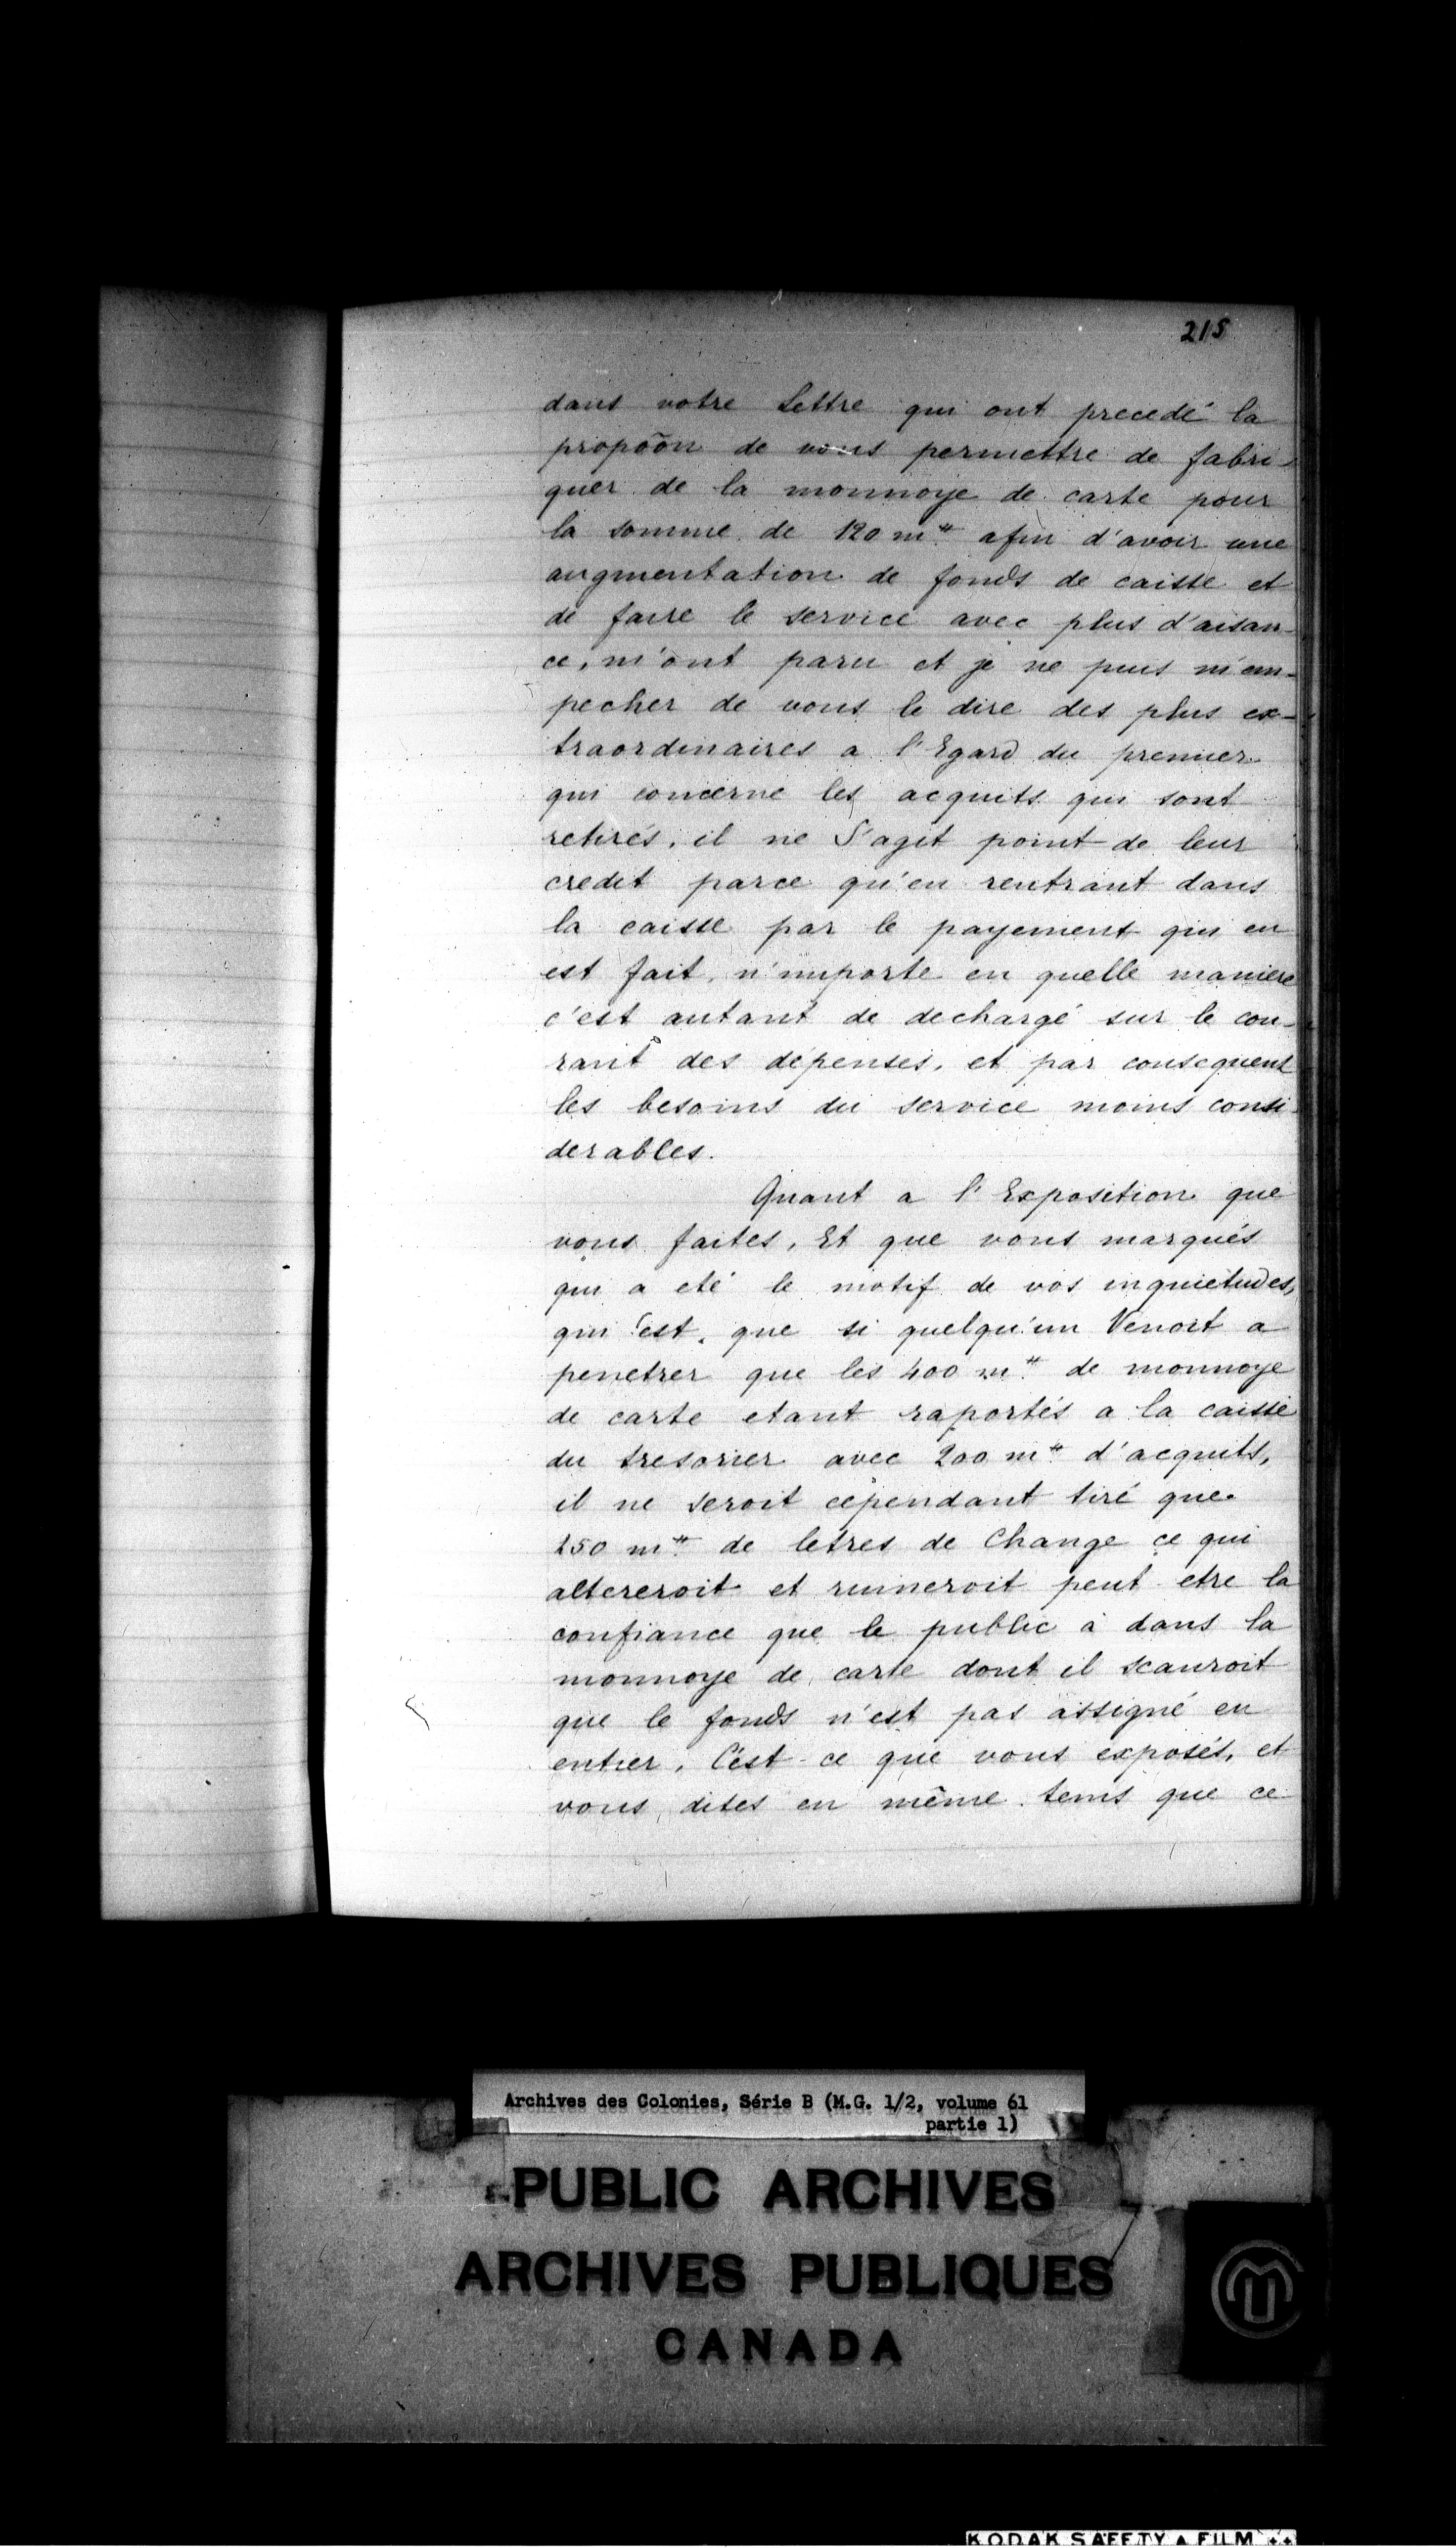 215
dans votre Lettre qui ont precedé la
propoõn de vous permettre de fabri-
quer de la monnoye de carte pour
la somme de 120 m# afin d'avoir une
augmentation de fonds de caisse et
de faire le service avec plus d'aisan-
ce, m'ont paru et je ne puis m'em-
pecher de vous le dire des plus ex-
traordinaires a l'Egard du premier
qui concerne les acquits qui sont
retirés, il ne S'agit point de leur
credit parce qu'en rentrant dans
la caisse par le payement qui en
est fait, n'importe en quelle maniere
c'est autant de dechargé sur le cou-
rant des dépenses, et par consequent
les besoins du service moins consi-
derables.
Quant a l'Exposition que
vous faites, Et que vous marqués
qui a eté le motif de vos inquietudes,
qui est, que si quelqu'un Venoit a
penetrer que les 400 m# de monnoye
de carte etant raportés a la caisse
du tresorier avec 200 m# d'acquits,
il ne seroit cependant tiré que
250 m# de letres de Change ce qui
altereroit et ruineroit peut etre la
confiance que le public à dans la
monnoye de carte dont il scauroit
que le fonds n'est pas assigné en
entier, C'est ce que vous exposés, et
vous dites en même tems que ce
Archives des Colonies, Série B (M.G. 1/2, volume 61
partie 1)
PUBLIC ARCHIVES
ARCHIVES PUBLIQUES
CANADA
KODAK SAFETY FILM